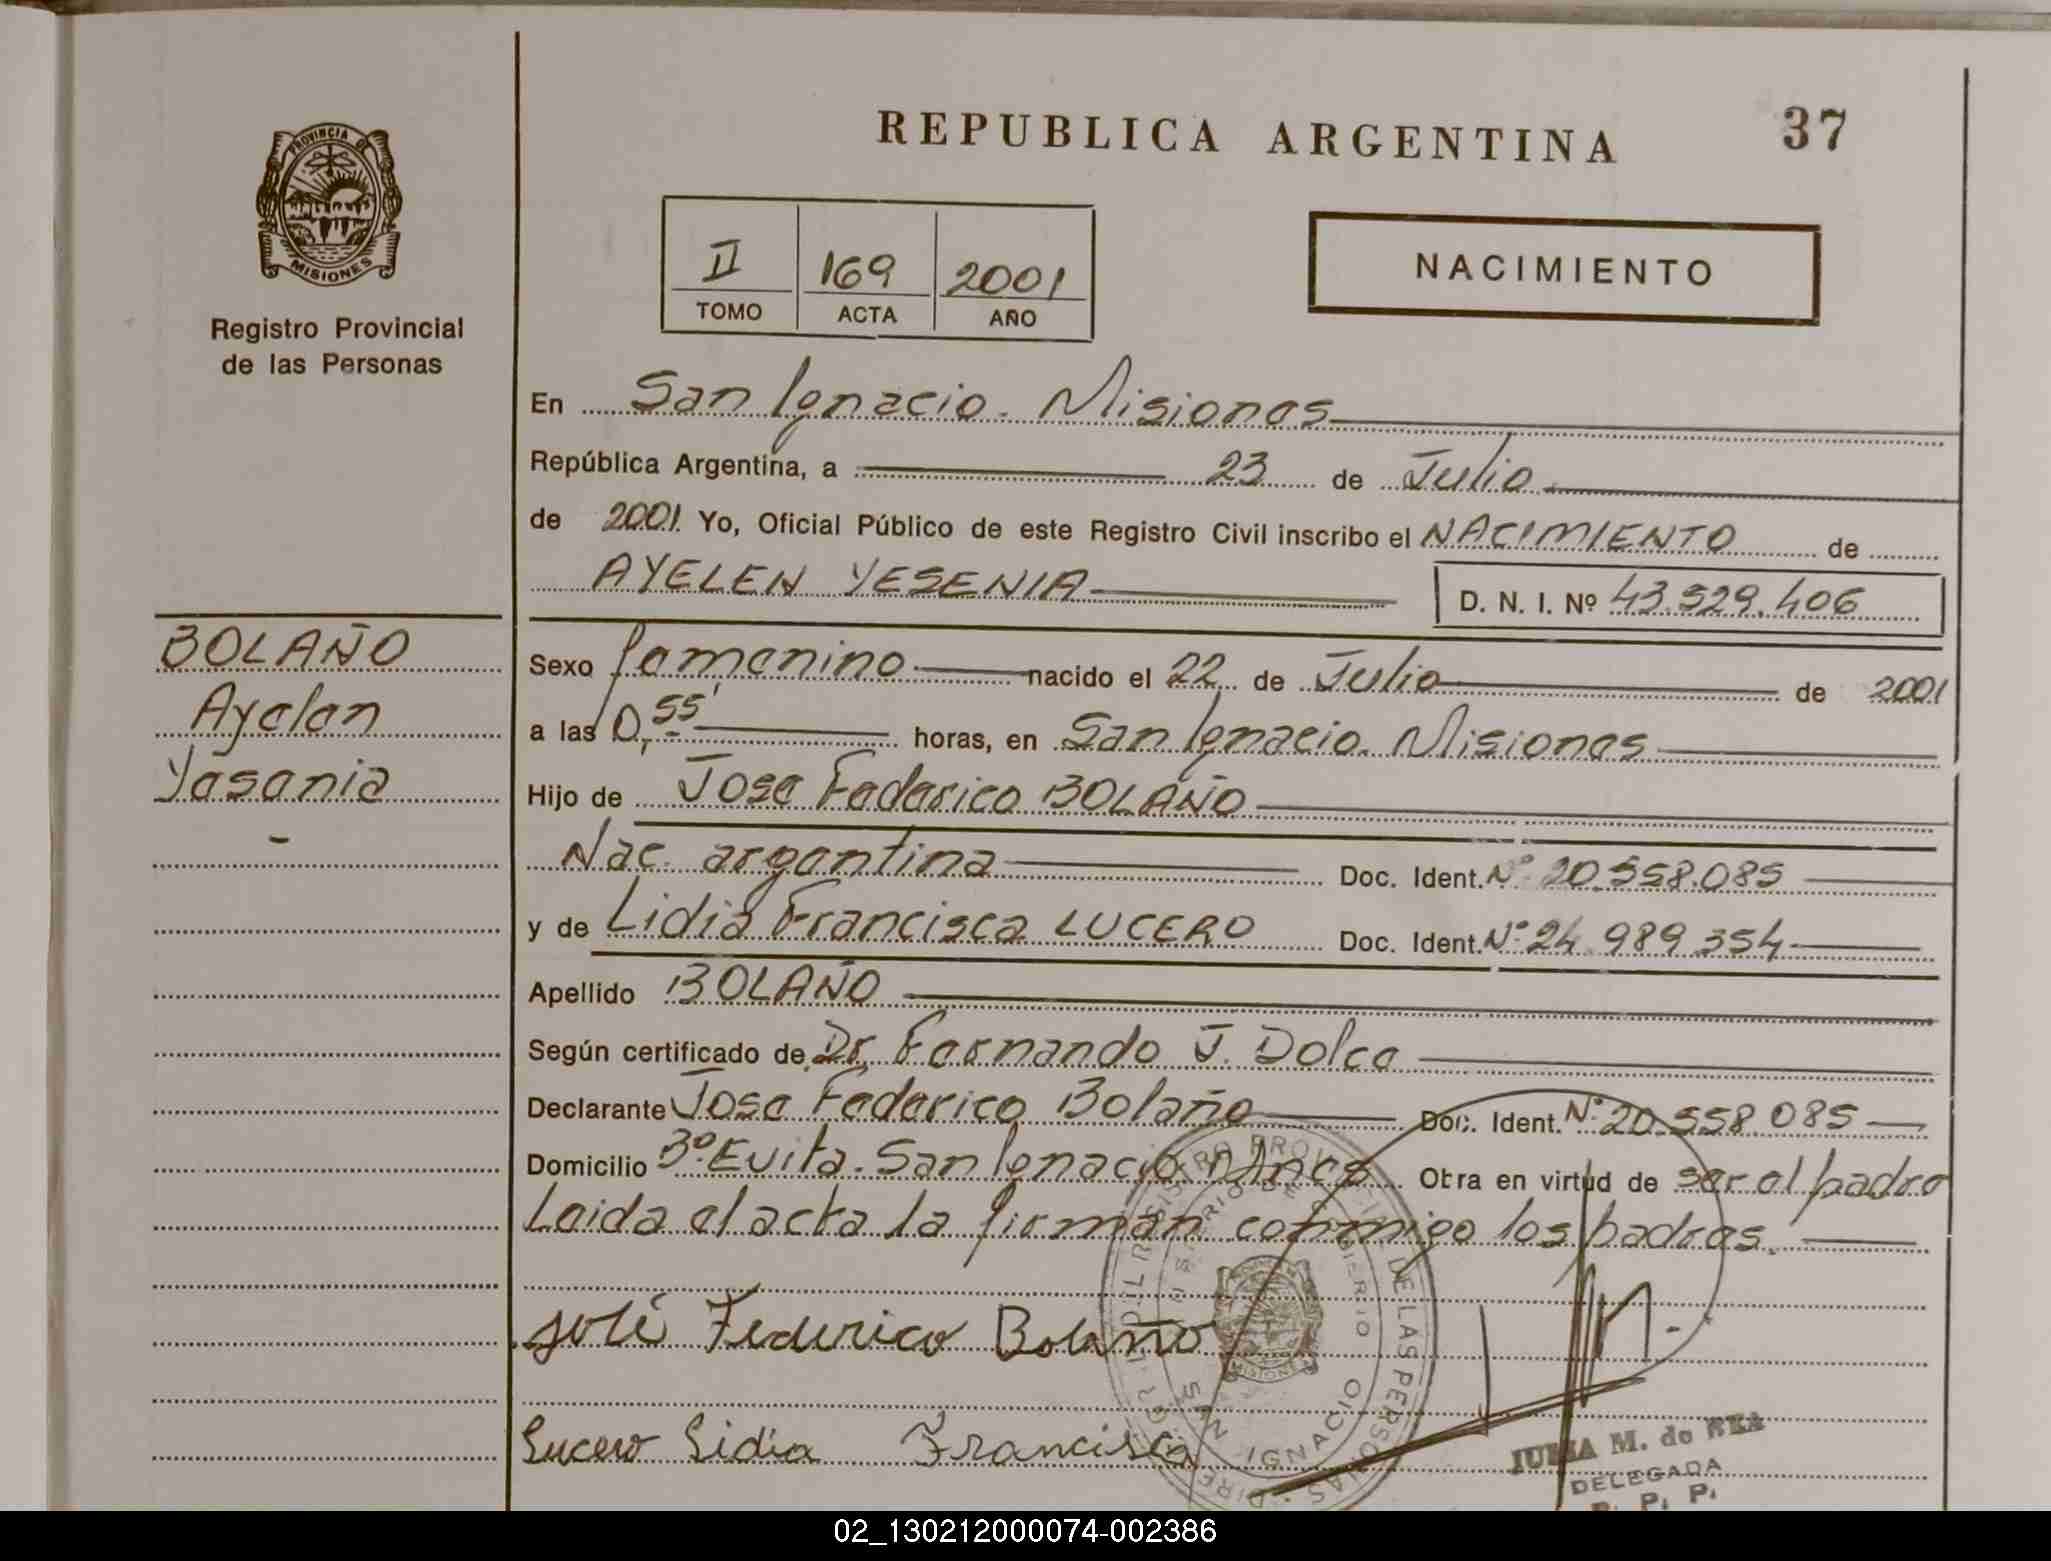 REPUBLICA ARGENTINA
37
PROVINCIA DE
MISIONES
Registro Provincial
de las Personas
II 169 2001
TOMO ACTA AÑO
NACIMIENTO
En San Ignacio - Misiones
República Argentina, a 23 de Julio
de 2001 Yo, Oficial Público de este Registro Civil inscribo el NACIMIENTO de
AYELEN YESENIA D. N. I. Nº 43.529.406
BOLAÑO
Ayelen
Yesenia
Sexo femenino nacido el 22 de Julio de 2001
a las 0,55' horas, en San Ignacio. Misiones
Hijo de Jose Federico BOLAÑO
Nac. argentina Doc. Ident. Nº 20.558.085
y de Lidia Francisca LUCERO Doc. Ident. Nº 24.989.354
Apellido BOLAÑO
Según certificado de Dr. Fernando J. Dolce
Declarante Jose Federico Bolaño Doc. Ident. Nº 20.558.085
Domicilio Bº Evita. San Ignacio Mnes Obra en virtud de ser el padre
Leida el acta la firman conmigo los padres.
José Federico Bolaño
Lucero Lidia Francisca
REGISTRO PROVINCIAL DE LAS PERSONAS
MINISTERIO DE GOBIERNO
MISIONES
SAN IGNACIO
M. de REA
DELEGADA
R. P. P.
02_130212000074-002386